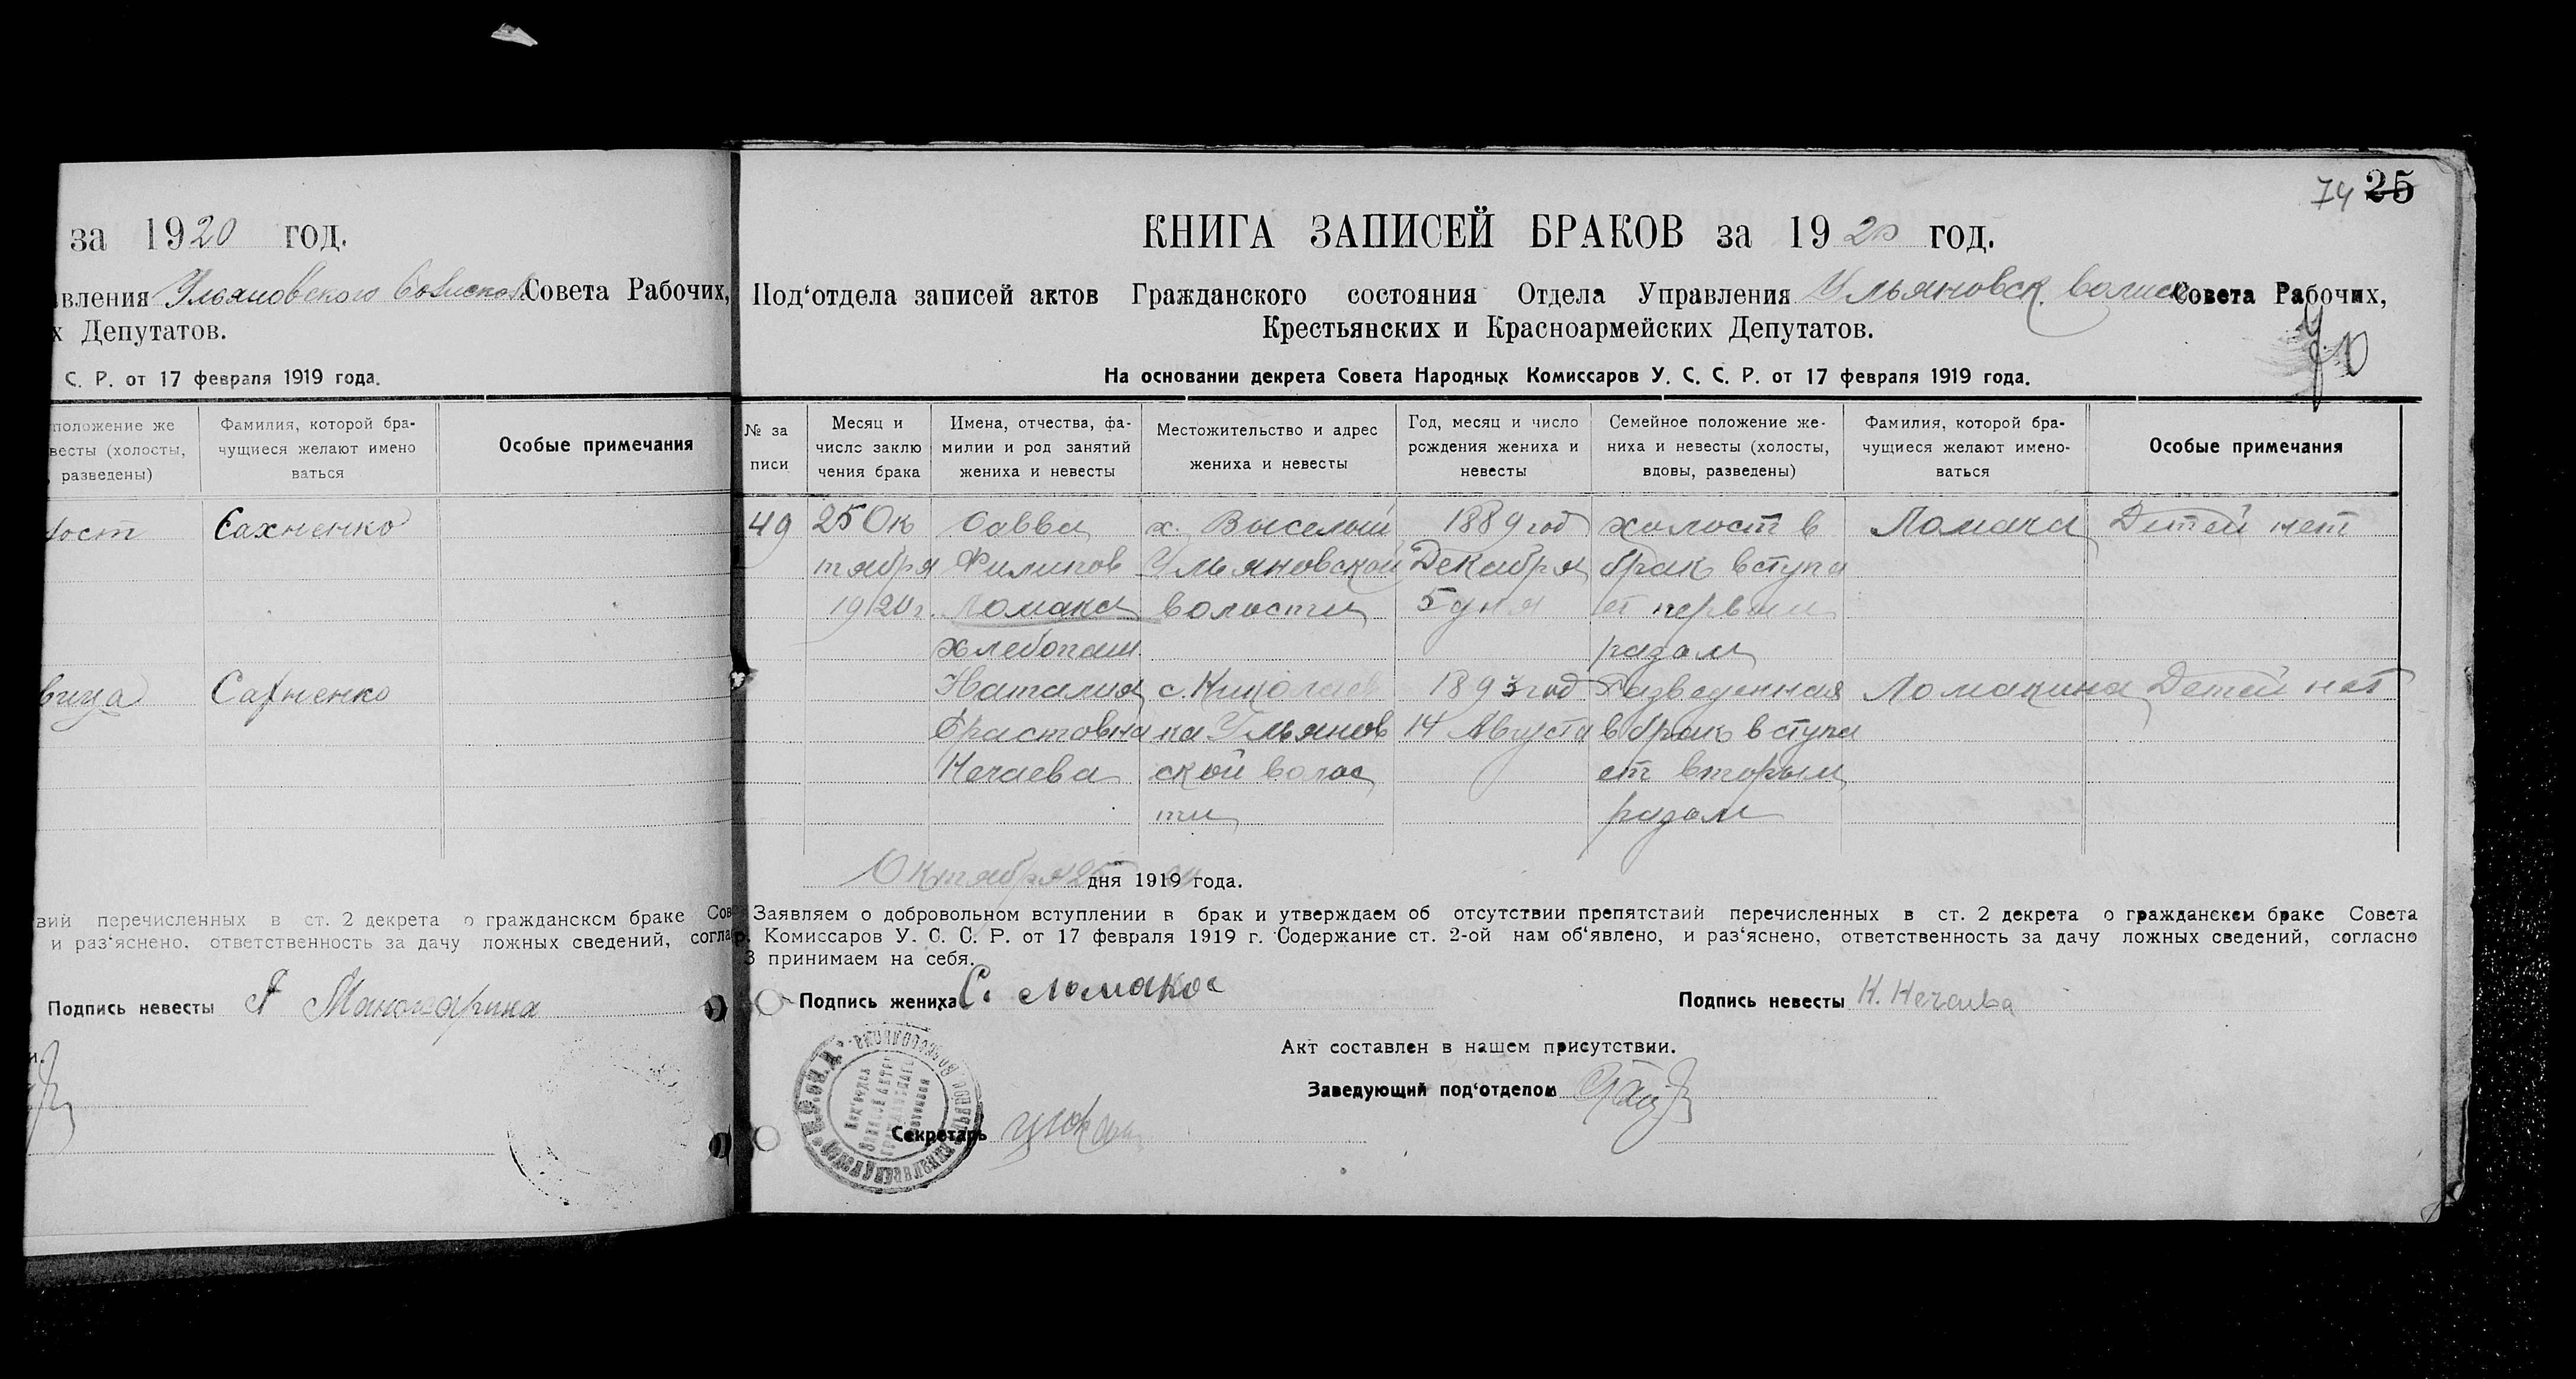 за 1920 год.
вления Ульяновского Совета Рабочих,
х Депутатов.
С. Р. от 17 февраля 1919 года.
положение же
весты (холосты,
разведены)
Фамилия, которой бра-
чущиеся желают имено
ваться
Особые примечания
лост Сахненко
вица Сахненко
вий перечисленных в ст. 2 декрета о гражданском браке Сов
и раз‘яснено, ответственность за дачу ложных сведений, соглас
Подпись невесты
74 25
КНИГА ЗАПИСЕЙ БРАКОВ за 1920 год.
Под‘отдела записей актов Гражданского состояния Отдела Управления Ульяновск. волиск Совета Рабочих,
Крестьянских и Красноармейских Депутатов.
На основании декрета Совета Народных Комиссаров У. С. С. Р. от 17 февраля 1919 года.
№ за
писи
Месяц и
число заклю
чения брака
Имена, отчества, фа-
милии и род занятий
жениха и невесты
Местожительство и адрес
жениха и невесты
Год, месяц и число
рождения жениха и
невесты
Семейное положение же-
ниха и невесты (холосты,
вдовы, разведены)
Фамилия, которой бра-
чущиеся желают имено-
ваться
Особые примечания
49 25 Ок Савва х. Выселый 1889 год холост в Ломака Детей нет
тября Филипов Ульяновской Декабря брак вступа
1920 г. Ломака волости 5 дня ет первым
хлебопаш. разом
Наталия с. Николаев 1893 год Разведенная Ломакина Детей нет
Ерастовна ка Ульянов 14 Августа в брак вступа
Нечаева ской волос ет вторым
ти разом
Октября 25 дня 1919 года.
Заявляем о добровольном вступлении в брак и утверждаем об отсутствии препятствий перечисленных в ст. 2 декрета о гражданском браке Совета
р. Комиссаров У. С. С. Р. от 17 февраля 1919 г. Содержание ст. 2-ой нам об‘явлено, и раз‘яснено, ответственность за дачу ложных сведений, согласно
3 принимаем на себя.
Подпись жениха С. Ломака Подпись невесты Н. Нечаева
Акт составлен в нашем присутствии.
Заведующий под‘отделом
Секретарь